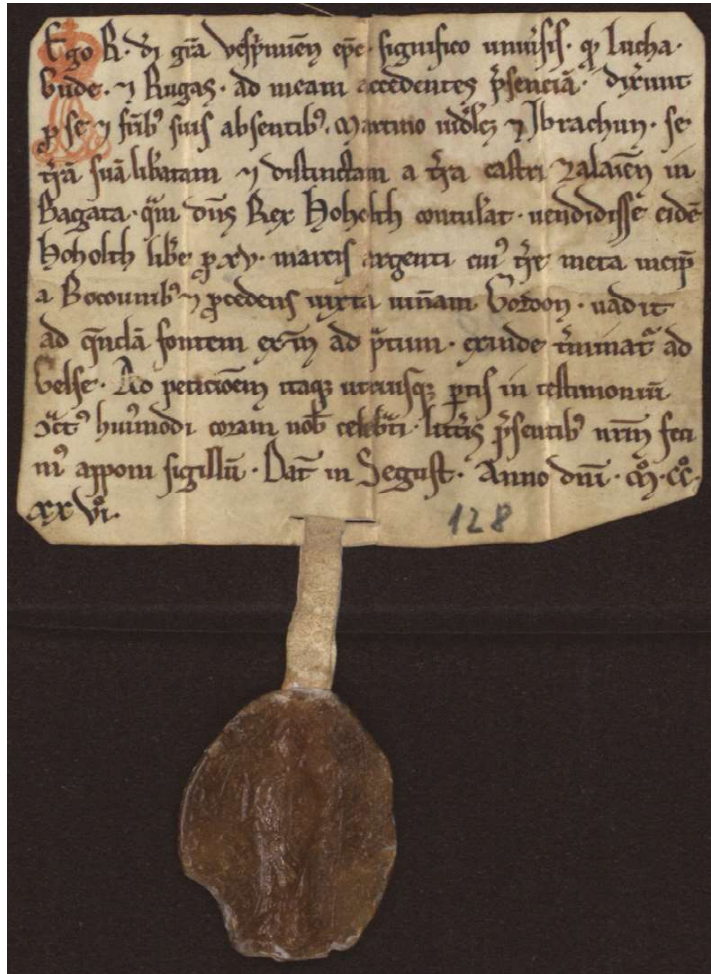 Ego R. di gra vesprimien epc. significo univsis. qd Lucha.
Bude. ⁊ Rugas. ad meam accedentes psenciā. dixunt
p se ⁊ frib suis absentib. Martino ⁊ Ibrachun. se
trā suā libatam ⁊ distinctam a tra castri zalaien in
Bagata. qm dns Rex Hoholth contulat. uendidisse eidē
Hoholth libe p xv. marcis argenti cui tre meta incip
a ⁊ pcedens iuxta uineam Gordon. uadit
ad qndā fontem ad pratum. exinde tminat ad
Gelse. Ad peticioem itaq utriusq ptis in testimoniū
huimodi coram nob celebti. littis psentib nrm feci
m apponi sigillū. Dat in Segust. Anno dni. m. cc.
xx vi.
128